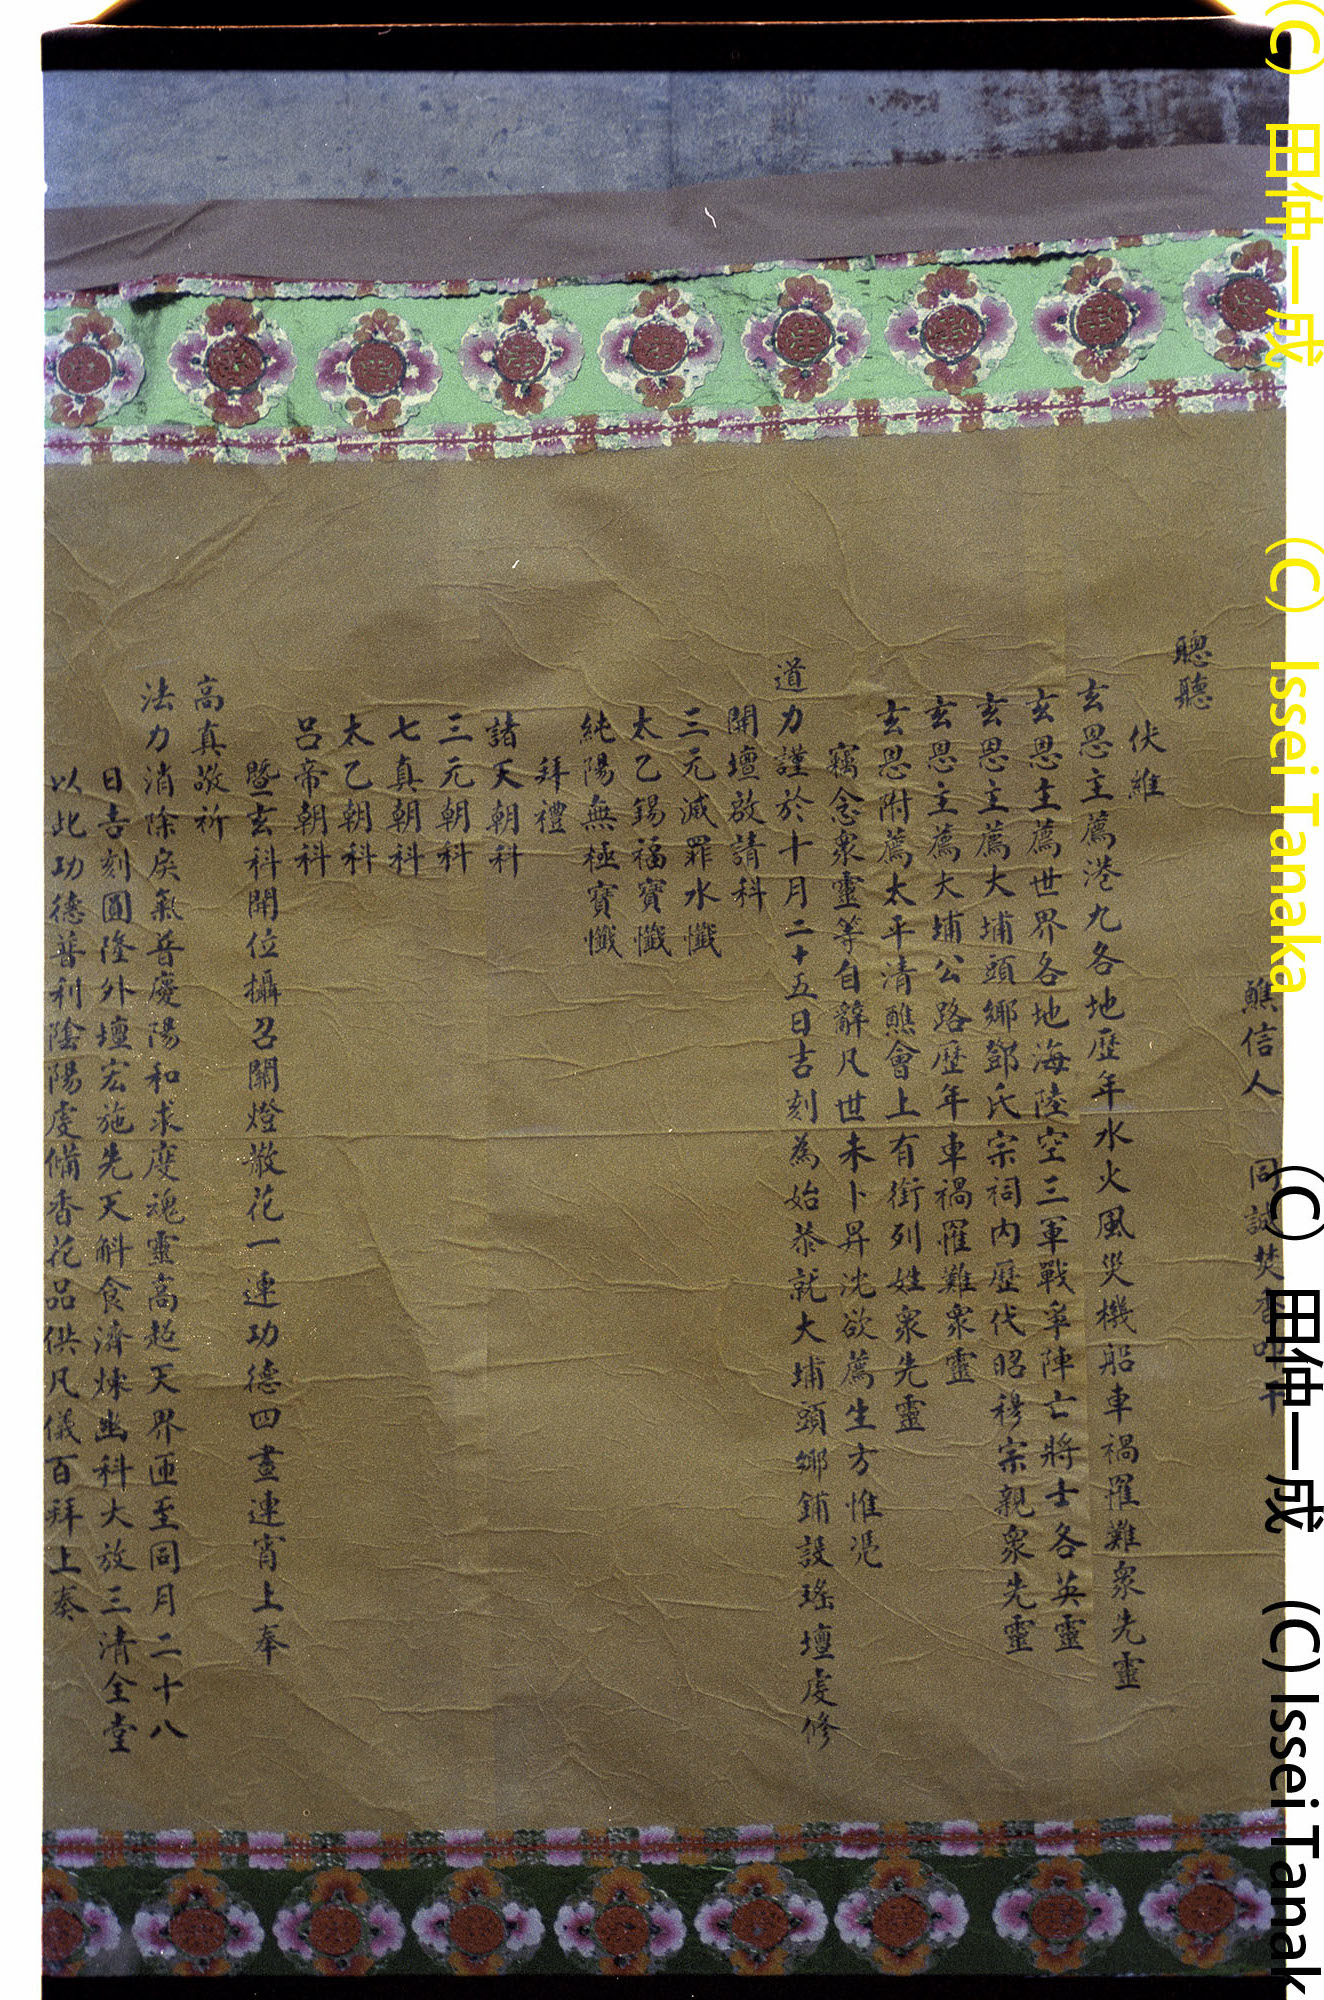 醮信人 同誠焚香叩干
聰聽
伏維
玄恩主薦港九各地歷年水火風災機船車禍罹難衆先靈
玄恩主薦世界各地海陸空三軍戰爭陣亡將士各英靈
玄恩主薦大埔頭鄉鄧氏宗祠內歷代昭穆宗親衆先靈
玄恩主薦大埔公路歷年車禍罹難衆靈
玄恩附薦太平清醮會上有銜列姓衆先靈
竊念衆靈等自辭凡世未卜昇沈欲薦生方惟憑
道力謹於十月二十五日吉刻為始恭就大埔頭鄉鋪設瑤壇虔修
開壇啟請科
三元滅罪水懺
太乙錫福寶懺
純陽無極寶懺
拜禮
諸天朝科
三元朝科
七真朝科
太乙朝科
呂帝朝科
暨玄科開位攝召關燈散花一連功德四晝連宵上奉
高真敬祈
法力消除戾氣普慶陽和求度魂靈高超天界迊至同月二十八
日吉刻圓隆外壇宏施先天斛食濟煉幽科大放三清全堂
以此功德普利陰陽虔備香花品供凡儀百拜上奏
(C) 田仲一成 (C) Issei Tanaka
(C) 田仲一成 (C) Issei Tanak